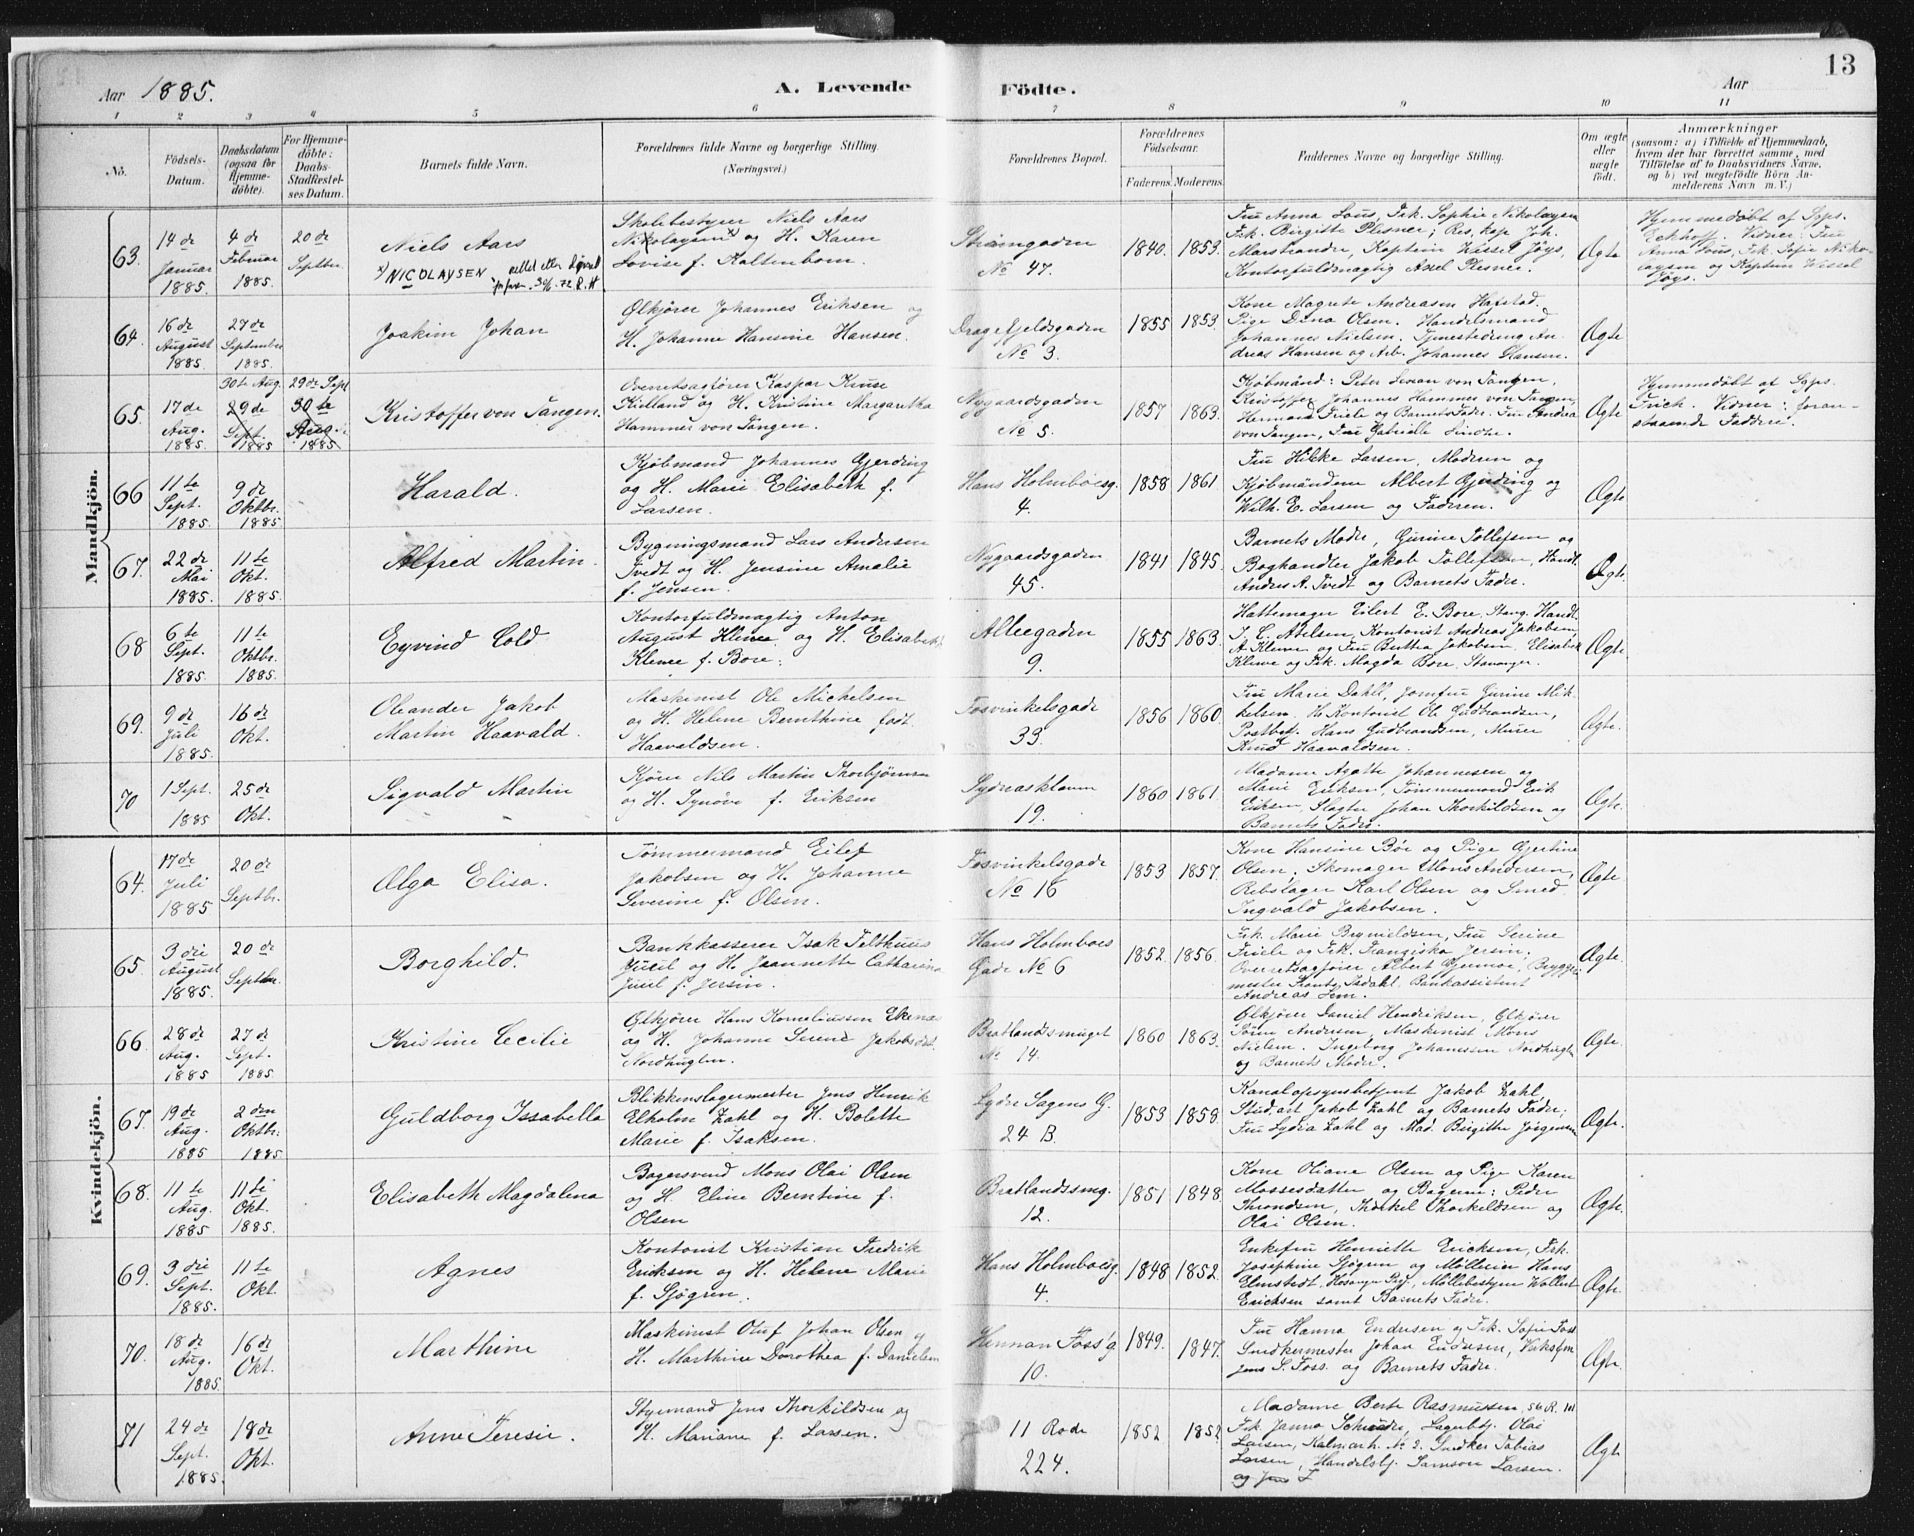 13
Aar 1885. A. Levende Födte. Aar
1 2 3 4 5 6 7 8 9 10 11
No. Födsels-Datum. Daabsdatum (ogsaa for Hjemmedöbte). For Hjemmedöbte: Daabs-Stadfæstelses Datum. Barnets fulde Navn. Forældrenes fulde Navne og borgerlige Stilling. (Næringsvei.) Forældrenes Bopæl. Forældrenes Födselsaar. Faderens. Moderens. Faddernes Navne og borgerlige Stilling. Om ægte eller uægte födt. Anmærkninger (saasom: a) i Tilfælde af Hjemmedaab, hvem der har forrettet samme, med Tilföielse af to Daabsvidners Navne, og b) ved uægtefödte Börn Anmelderens Navn m. V.)
Mandkjön.
63. 14 de Januar 1885. 4 de Februar 1885. 20 de Septbr. Niels Aars x) NICOLAYSEN
Skolebestyrer Niels Aars Nikolaysen x) og H. Karen Lovise f. Kaltenborn.
Strømgaden No 47. 1840. 1853.
Fru Anna Lous, Frk. Sophie Nikolaysen Frk. Birgitte Plesner; Res. kap. Joh. Marstrander, Kaptein Wessel Jøgs, Kontorfuldmægtig Axel Plesner. Ægte
Hjemmedøbt af Sgps. Eckhoff. Vidner: Fru Anna Lous, Frk. Sofie Nikolaysen og Kaptein Wessel Jøgs.
64. 16 de August 1885. 27 de September 1885. Joakim Johan
Ølkjører Johannes Eriksen og H. Johanne Hansine Hansen.
Dragefjeldsgaden No 3. 1855 1853.
Kone Magrete Andreasen Hafstad. Pige Dina Olsen. Handelsmand Johannes Nielsen. Tjenestedreng Andreas Hansen og Arb. Johannes Hansen. Ægte
65. 17 de Aug. 1885. 30te Aug. 29 de Sept. 1885 29 de Sept 30 te Aug. 1885 Kristoffer von Tangen.
Overretssagfører Kaspar Kruse Kielland og H. Kristine Margaretha Hammer von Tangen.
Nygaardsgaden No 5. 1857 1863.
Kjøbmænd: Peter Severin von Tangen, Kristoffer Johannes Hammer von Tangen, Herman Friele og Barnets Fader. Fru Andrea von Tangen, Fru Gabrielle Lindtner. Ægte
Hjemmedøbt af Sgps. Frich. Vidner: foranstaaende Faddere.
66 11 te Sept. 1885. 9 de Oktbr. 1885. Harald.
Kjøbmand Johannes Gjerding og H. Marie Elisabeth f. Larsen.
Hans Holmboesg. 4. 1858 1861
Fru Hilke Larsen, Moderen og Kjøbmændene Albert Gjerding og Wilh. E. Larsen og Faderen. Ægte
67. 22 de Mai 1885. 11 te Okt. 1885. Alfred Martin.
Bygningsmand Lars Andersen Tvedt og H. Jensine Amalie f. Jensen.
Nygaardsgaden 45. 1841 1845.
Barnets Moder, Gurine Tollefsen og Boghandler Jakob Tollefsen, Handl. Andreas A. Tvedt og Barnets Fader. Ægte.
68 6 te Sept. 1885 11 te Oktbr. 1885. Eyvind Cold.
Kontorfuldmægtig Anton August Klewe og H. Elisabeth Klewe f. Bore.
Alleegaden 9. 1855 1863.
Hattemager Eilert E. Bore, Stavg. Handl. I. C. Axelsen, Kontorist Andreas Jakobsen, A. Klewe og Fru Bertha Jakobsen, Elisabeth Klewe og Frk. Magda Bore, Stavanger. Ægte.
69. 9 de Juli 1885. 16 de Okt. Oleander Jakob Martin Haavald.
Maskinist Ole Mickelsen og H. Helene Bernthine født Haavaldsen.
Fosvinkelsgade 33. 1856 1860.
Fru Marie Dahll, Jomfru Gurine Mikkelsen. Hr. Kontorist Ole Gudbrandsen, Postbef. Hans Gudbrandsen, Murer Knud Haavaldsen. Ægte.
70 1 Sept. 1885 25 de Okt. Sigvald Martin
Kjører Nils Martin Thorbjørnsen og H. Synøve f. Eriksen
Sydnæskleven 19. 1860 1861.
Madame Agathe Johannesen og Marie Eriksen, Tømmermand Erik Eriksen, Slagter Johan Thorkildsen og Barnets Fader. Ægte.
Kvindekjön.
64. 17 de Juli 1885 20 de Septbr. Olga Elisa.
Tømmermand Eilef Jakobsen og H. Johanne Severine f. Olsen.
Fosvinkelsgade No 16 1853 1857.
Kone Hansine Bøe og Pige Gjertine Olsen. Skomager Mons Andersen, Rebslager Karl Olsen og Smed Ingvald Jakobsen. Ægte
65. 3 die August 1885. 20 de Septbr. Borghild.
Bankkasserer Isak Felthuus Juul og H. Jeannette Catharina Juul f. Jersin.
Hans Holmboes Gade No 6 1852. 1856.
Frk. Marie Brynildsen, Fru Serine Friele og Frk. Franziska Jersin. Overretssagfører Albert Gjemoe, Bryggemester Isdahl, Bankassistent Andreas Lem. Ægte.
66. 28 de Aug. 1885 27 de Sept. 1885. Kristine Cecilie
Ølkjører Hans Korneliussen Ekenæs og H. Johanne Serene Jakobsdt. Nordhuglen.
Bratlandssmuget No 14. 1860 1863.
Ølkjører Daniel Hendriksen, Ølkjører Søren Andersen, Maskinist Mons Nielsen. Ingeborg Johannessen Nordhuglen og Barnets Moder. Ægte.
67. 19 de Aug. 1885 2 den Oktbr. 1885. Guldborg Issabella
Blikkenslagermester Jens Henrik Elholm Zahl og H. Bolette Marie f. Isaksen.
Lyder Sagens G. 24 B. 1853 1858.
Kanalopsynsbetjent Jakob Zahl, Stud. art Jakob Zahl og Barnets Fader. Fru Lydia Zahl og Mad. Birgitte Jørgensen Ægte.
68. 11 te Aug. 1885 11 te Okt. 1885. Elisabeth Magdalena
Bagersvend Mons Olai Olsen og H. Eline Berntine f. Olsen
Bratlandssmg. 12. 1851 1848.
Kone Oliane Olsen og Pige Karen Mossesdatter og Bagerne: Peder Throndsen, Thorkel Thorkeldsen og Olai Olsen. Ægte.
69. 3 die Sept. 1885. 11 te Okt. Agnes
Kontorist Kristian Fredrik Ericksen og H. Helene Marie f. Sjøgren.
Hans Holmboesg. 4. 1848 1852.
Enkefru Henriette Ericksen, Frk. Josephine Sjøgren og Møllerier Hans Elmstedt Hosanger Prf., Møllebestyrer Wollert Ericksen samt Barnets Fader. Ægte.
70. 18 de Aug. 1885. 16 de Okt. Marthine
Maskinist Oluf Johan Olsen og H. Marthine Dorothea f. Danielsen
Herman Foss' g. 10. 1849. 1847.
Fru Hanna Endresen og Frk. Sofie Foss Snedkermester Johan Endresen, Værksfm. Jens S. Foss. og Barnets Fader. Ægte.
71 24 de Sept. 1885. 18 de Okt. Anne Teresie.
Styrmand Jens Thorkildsen og H. Mariane f. Larsen.
11 Rode 224. 1852 1852
Madame Berte Rasmussen, 5te R. 101 Frk. Janna Schrøder, Lagerbtj. Olai Larsen, Kalmarh. No 2. Snedker Tobias Larsen, Handelsbtj. Samson Larsen. og Jens T Ægte